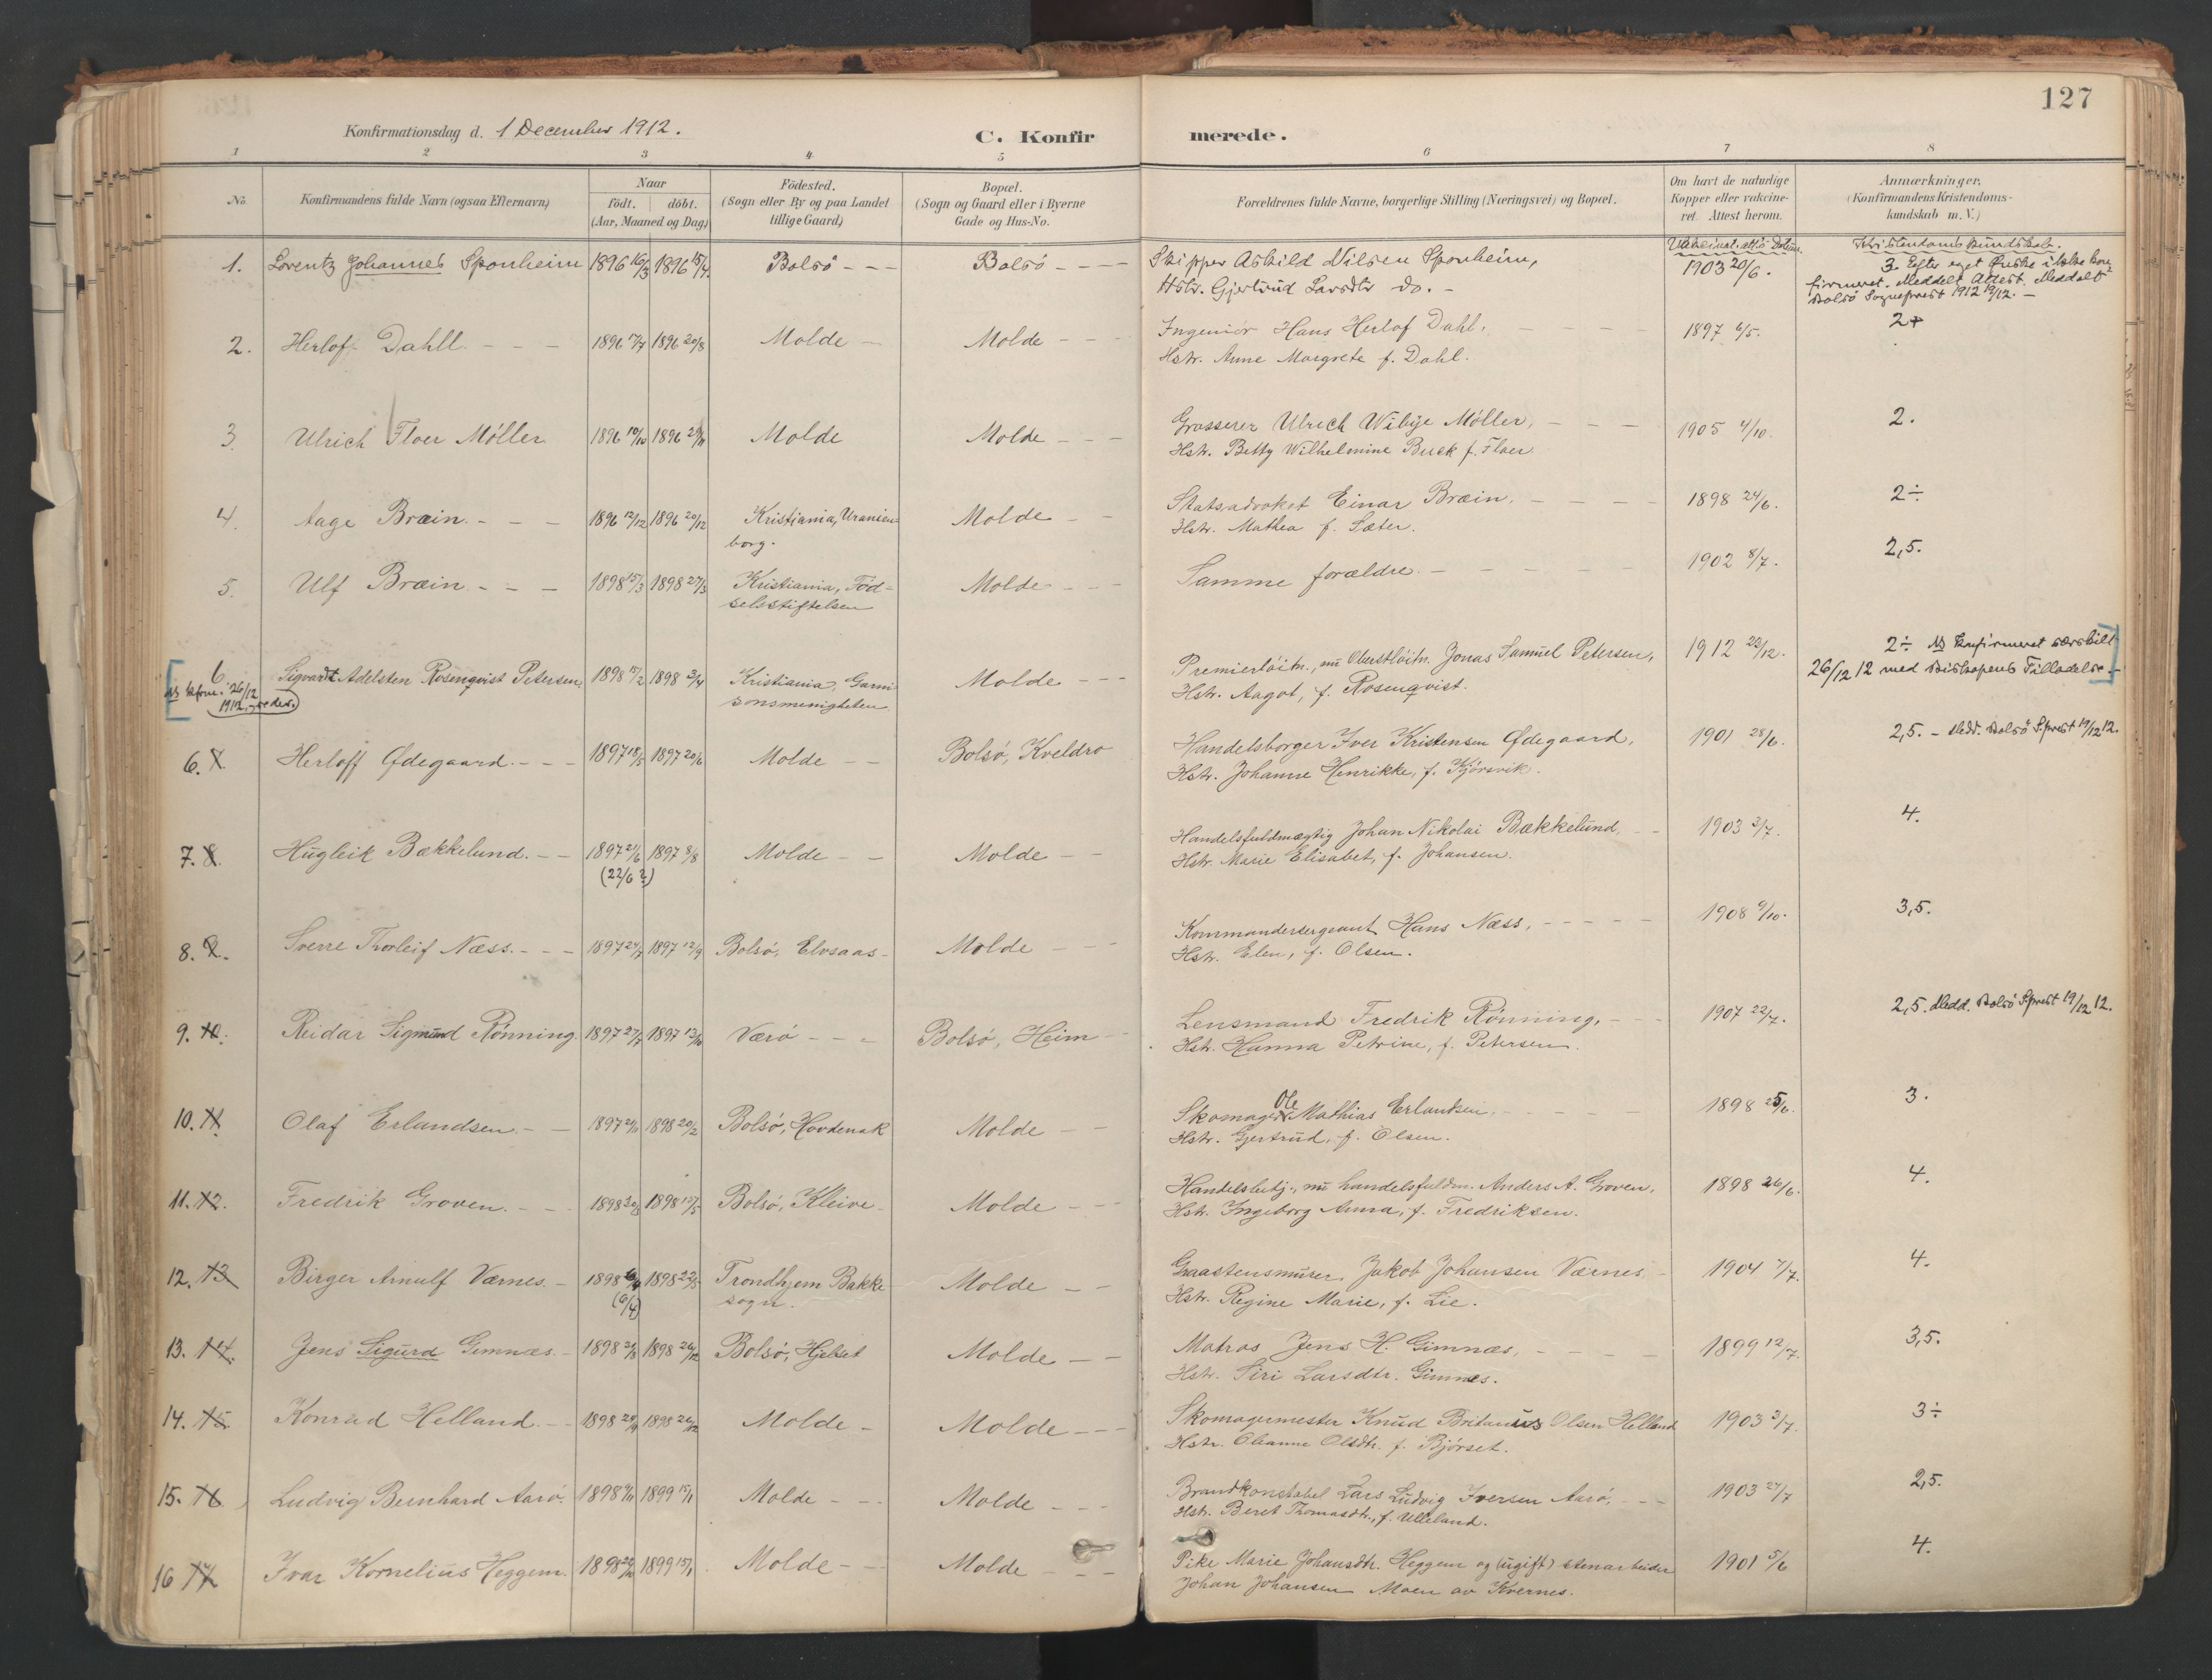 127
Konfirmationsdag d. 1 December 1912.
C. Konfirmerede.
1 2 3 4 5 6 7 8
No.
Konfirmandens fulde Navn (ogsaa Efternavn)
Naar
födt. döbt.
(Aar, Maaned og Dag)
Födested.
(Sogn eller By og paa Landet
tillige Gaard)
Bopæl.
(Sogn og Gaard eller i Byerne
Gade og Hus-No.
Forældrenes fulde Navne, borgerlige Stilling (Næringsvei) og Bopæl.
Om havt de naturlige
Kopper eller vakcine-
ret. Attest herom.
Anmærkninger.
(Konfirmandens Kristendoms-
kundskab m. V.)
1. Lorentz Johannes Sponheim 1896 16/3 1896 15/4 Bolsö - - - Bolsö - - - - Skipper Askild Nilsen Sponheim, 1903 20/6. Kristendomskundskab.
Hstr. Gjertrud Larsdtr do. - 3. Efter eget Ønske ikke kon-
firmeret. Meddelt Attest. Meddelt
Bolsö Sogneprest 1912 19/12. -
2. Herlof Dahll - - - 1896 17/7 1896 20/8 Molde - Molde - - - Ingeniör Hans Herlof Dahl. 1897 6/5. 2+
Hstr. Anne Margrete f. Dahl.
3. Ulrich Floer Möller 1896 10/10 1896 29/11 Molde Molde - - - Grosserer Ulrich Wibye Möller, - - - 1905 4/10. 2.
Hstr. Betty Wilhelmine Buck f. Floer
4. Aage Bræin. - - - 1896 12/12 1896 20/12 Kristiania, Uranien- Molde - - Statsadvokat Einar Bræin. - - - - 1898 24/6. 2÷
borg. Hstr. Mathea f. Sæter.
5. Ulf Bræin - - - 1898 15/3 1898 27/3 Kristiania, Föd- Molde - - - Samme forældre - - - - - 1902 8/7. 2,5.
selsstiftelsen
6. Sigvardt Adelsten Rosenqvist Petersen 1898 15/2 1898 3/4 Kristiania, Garni- Molde - - - Premierlöitn., nu Oberstlöitn. Jonas Samuel Petersen, 1912 23/12. 2÷ NB Konfirmeret særskilt
NB kfrm. 26/12 sonsmenigheten. Hstr. Aagot, f. Rosenqvist. 26/12 12 med Biskopens Tilladelse -
1912, neder.)
6. 7. Herloff Ødegaard. - - - 1897 18/5 1897 20/6 Molde - - Bolsö, Kveldro Handelsborger Iver Kristensen Ødegaard, 1901 28/6. 2,5. - Medd. Bolsö Sprest 19/12 12.
Hstr. Johanne Henrikke, f. Kjörsvik.
7. 8. Hugleik Bækkelund. - - 1897 21/6 1897 8/8 Molde - - Molde - - Handelsfuldmægtig Johan Nikolai Bækkelund, - - 1903 3/7. 4.
(22/6 ?) Hstr. Marie Elisabet, f. Johansen.
8. 9. Sverre Thorleif Næss. - - - 1897 24/7 1897 12/9 Bolsö, Elvsaas - Molde - - - Kommandersergeant Hans Næss, - - - - - 1908 9/10. 3,5.
Hstr. Elen, f. Olsen.
9. 10. Reidar Sigmund Rönning. 1897 27/7 1897 13/10 Værö - - - Bolsö, Heim - Lensmand Fredrik Rönning, - - - 1907 22/7. 2,5. Medd. Bolsö Sprest 19/12 12.
Hstr. Hanna Petrine, f. Petersen.
10. 11. Olaf Erlandsen - - 1897 21/11 1898 20/2 Bolsö, Hovdenak Molde - - Skomager Ole Mathias Erlandsen, - - - - - 1898 25/6. 3.
Hstr. Gjertrud, f. Olsen.
11. 12. Fredrik Groven. - - - 1898 20/3 1898 15/5 Bolsö, Kleive - Molde - - - Handelsbetj., nu handelsfuldm. Anders A. Groven, 1898 26/6. 4.
Hstr. Ingeborg Anna, f. Fredriksen.
12. 13 Birger Arnulf Værnes. - 1898 6/4 1898 22/5 Trondhjem Bakke Molde - - Graastensmurer Jakob Johansen Værnes - 1904 7/7. 4.
(6/4) sogn. Hstr. Regine Marie, f. Lie.
13. 14. Jens Sigurd Gimnæs. - 1898 21/8 1898 26/12 Bolsö, Hjelset Molde - - Matros Jens H. Gimnæs, - - - - 1899 12/7. 3,5.
Hstr. Siri Larsdtr. Gimnæs.
14. 15. Konrad Helland. - - 1898 29/9 1898 26/12 Molde - Molde - - - Skomagermester Knud Britanius Olsen Helland 1903 3/7. 3÷
Hstr. Oleanne Olsdtr. f. Björset.
15. 16 Ludvig Bernhard Aarö. 1898 9/11 1899 15/1 Molde - - - Molde - - - Brandkonstabel Lars Ludvig Iversen Aarö, - - - 1903 27/7 2,5.
Hstr. Beret Thomasdtr., f. Ulleland.
16 17 Ivar Kornelius Heggem. 1898 29/10 1899 15/1 Molde - - Molde - - - Pike Marie Johansdtr. Heggem og (ugift) stenarbeider 1901 5/6 4.
Johan Johansen Moen av Kvernes.